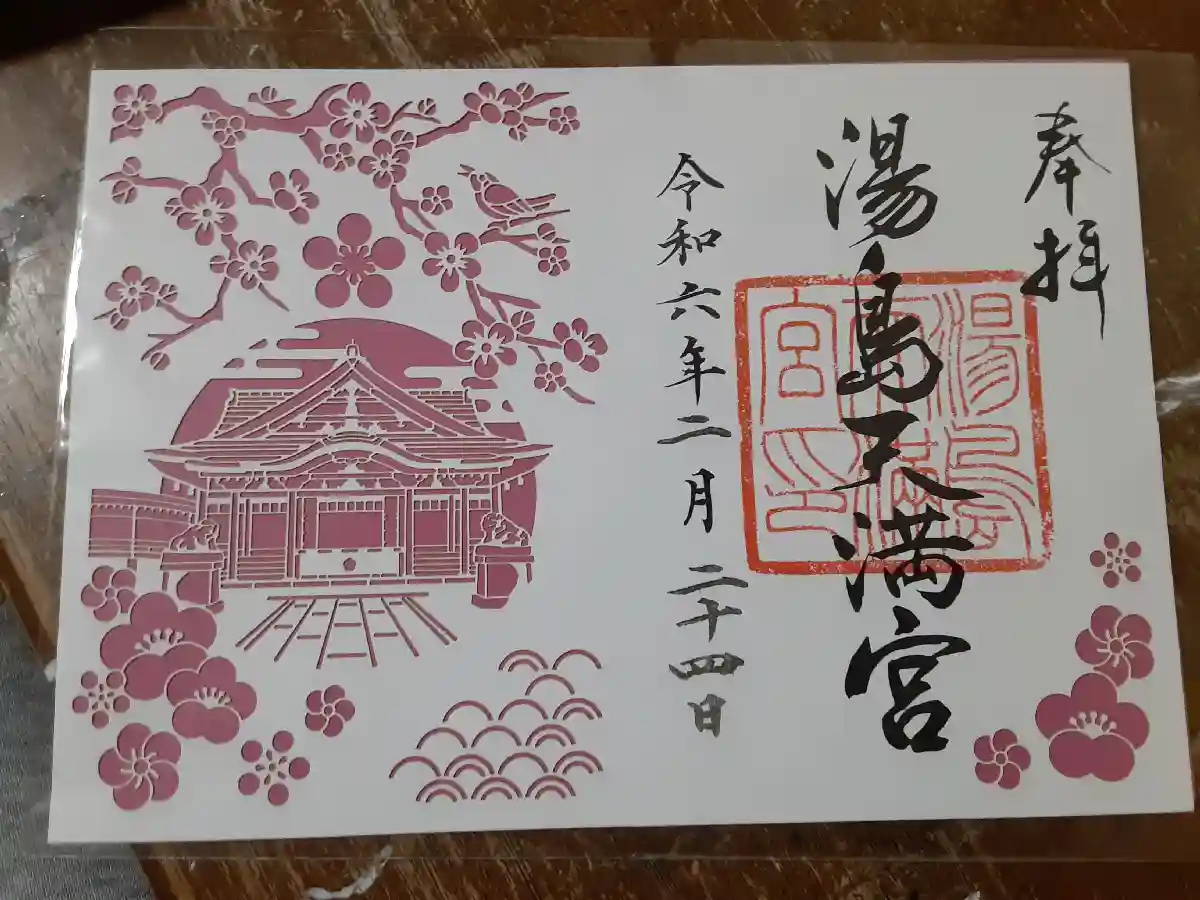 奉拝
湯島天満宮
湯島天満宮印
令和六年二月二十四日